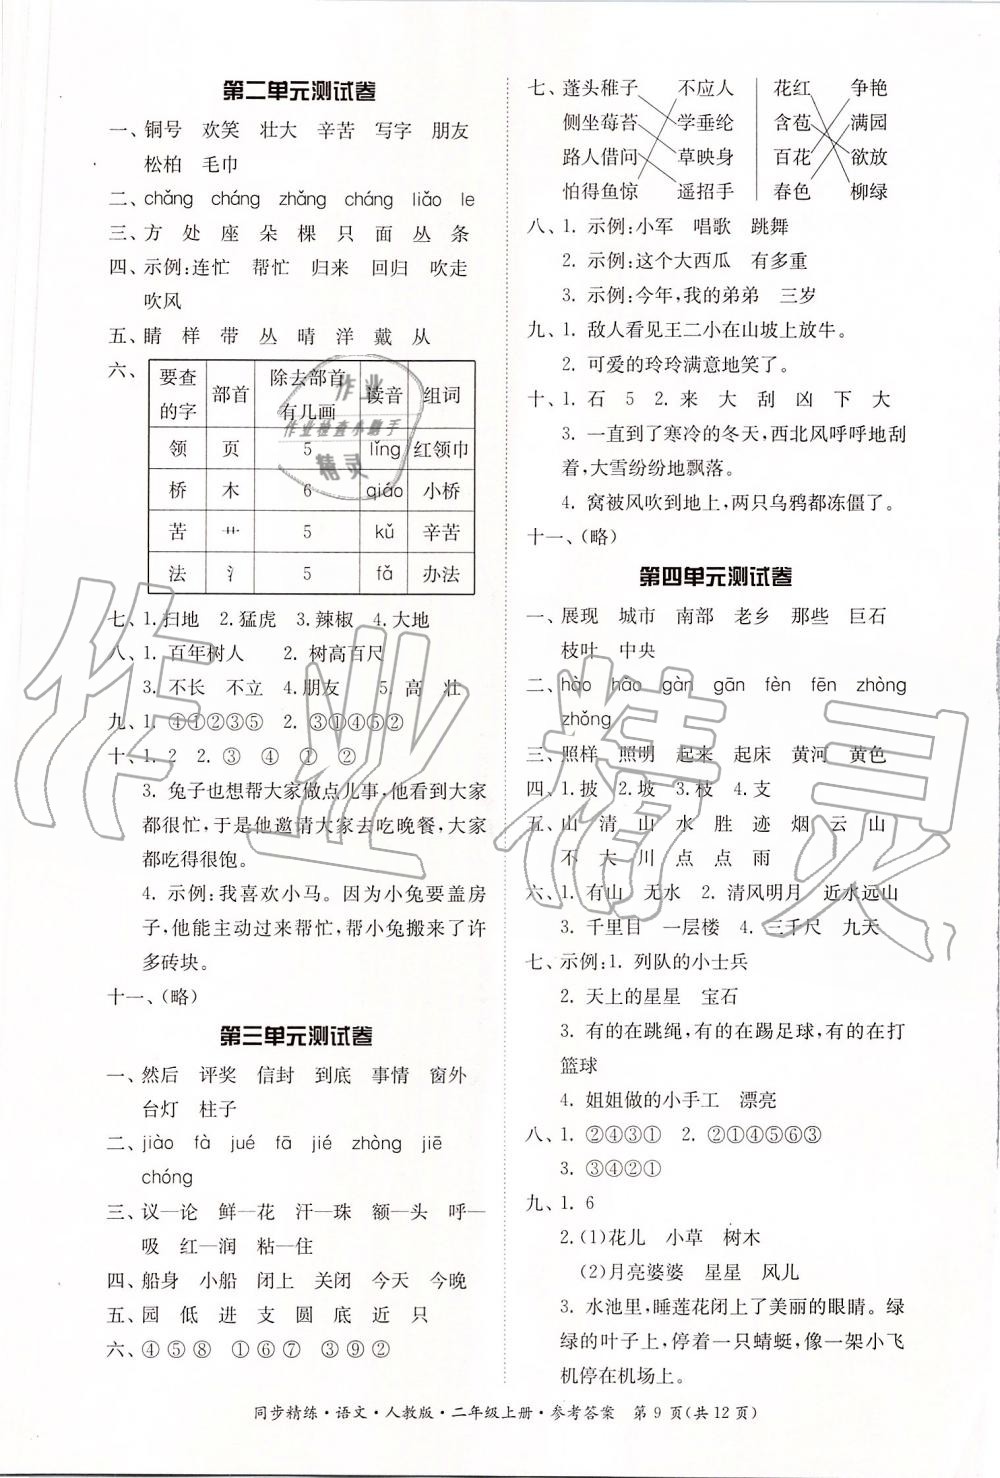 第二单元测试卷
一、铜号 欢笑 壮大 辛苦 写字 朋友
松柏 毛巾
二、chǎng cháng zhǎng cháng liǎo le
三、方 处 座 朵 棵 只 面 丛 条
四、示例:连忙 帮忙 归来 回归 吹走
吹风
五、睛 样 带 丛 晴 洋 戴 从
六、
要查的字 部首 除去部首有几画 读音 组词
领 页 5 lǐng 红领巾
桥 木 6 qiáo 小桥
苦 艹 5 kǔ 辛苦
法 氵 5 fǎ 办法
七、1.扫地 2.猛虎 3.辣椒 4.大地
八、1. 百年树人 2. 树高百尺
3. 不长 不立 4.朋友 5. 高 壮
九、1. ④①②③⑤ 2. ③①④⑤②
十、1. 2 2. ③ ④ ① ②
3. 兔子也想帮大家做点儿事,他看到大家
都很忙,于是他邀请大家去吃晚餐,大家
都吃得很饱。
4. 示例:我喜欢小马。因为小兔要盖房
子,他能主动过来帮忙,帮小兔搬来了许
多砖块。
十一、(略)
第三单元测试卷
一、然后 评奖 信封 到底 事情 窗外
台灯 柱子
二、jiào fà jué fā jié zhòng jiē
chóng
三、议—论 鲜—花 汗—珠 额—头 呼—
吸 红—润 粘—住
四、船身 小船 闭上 关闭 今天 今晚
五、园 低 进 支 圆 底 近 只
六、④⑤⑧ ①⑥⑦ ③⑨②
七、蓬头稚子 不应人 花红 争艳
侧坐莓苔 学垂纶 含苞 满园
路人借问 草映身 百花 欲放
怕得鱼惊 遥招手 春色 柳绿
八、1. 示例:小军 唱歌 跳舞
2. 示例:这个大西瓜 有多重
3. 示例:今年,我的弟弟 三岁
九、1. 敌人看见王二小在山坡上放牛。
2. 可爱的玲玲满意地笑了。
十、1. 石 5 2. 来 大 刮 凶 下 大
3. 一直到了寒冷的冬天,西北风呼呼地刮
着,大雪纷纷地飘落。
4. 窝被风吹到地上,两只乌鸦都冻僵了。
十一、(略)
第四单元测试卷
一、展现 城市 南部 老乡 那些 巨石
枝叶 中央
二、hào hāo gàn gān fèn fēn zhòng
zhǒng
三、照样 照明 起来 起床 黄河 黄色
四、1.披 2.坡 3.枝 4.支
五、山 清 山 水 胜 迹 烟 云 山
不 大 川 点 点 雨
六、1. 有山 无水 2. 清风明月 近水远山
3. 千里目 一层楼 4. 三千尺 九天
七、示例:1. 列队的小士兵
2. 天上的星星 宝石
3. 有的在跳绳,有的在踢足球,有的在打
篮球
4. 姐姐做的小手工 漂亮
八、1. ②④③① 2. ②①④⑤⑥③
3. ③④②①
九、1. 6
2.(1)花儿 小草 树木
(2)月亮婆婆 星星 风儿
3. 水池里,睡莲花闭上了美丽的眼睛。绿
绿的叶子上,停着一只蜻蜓,像一架小飞
机停在机场上。
同步精练·语文·人教版·二年级上册·参考答案 第9页(共12页)
作业
作业检查小助手
精灵
作业精灵